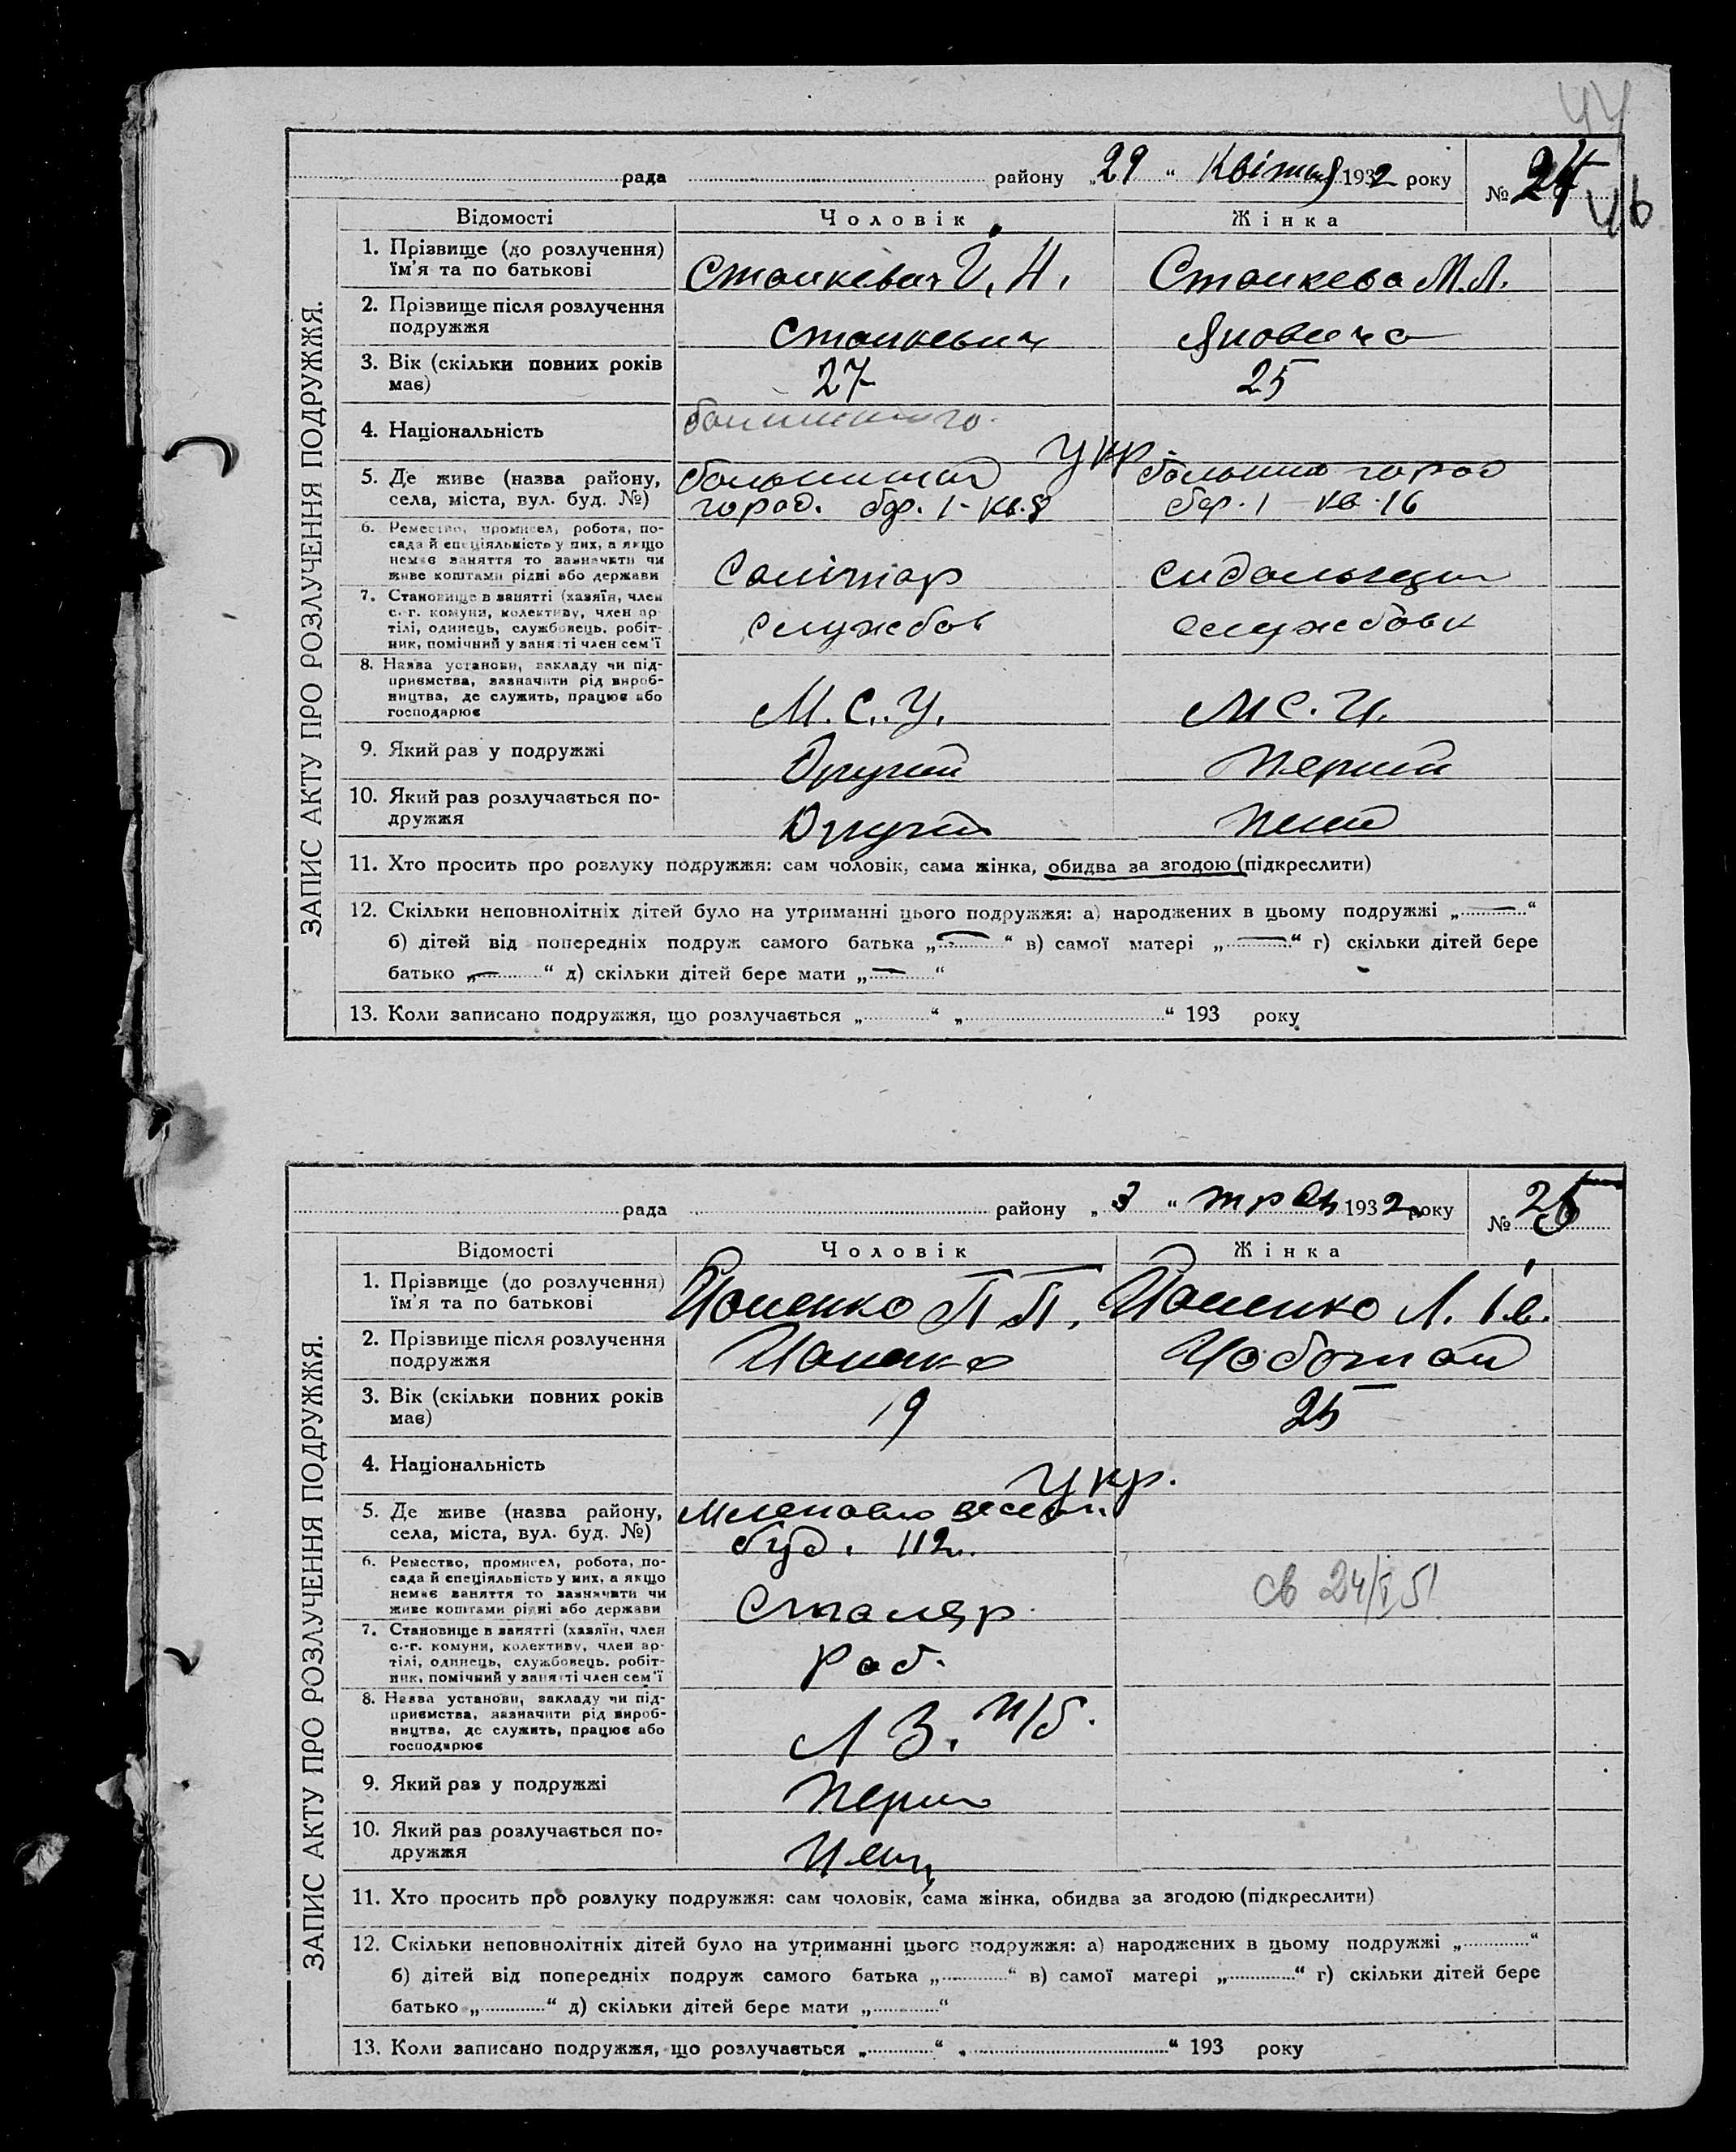 44
рада району „29“ Квітня 1932 року № 24
46
ЗАПИС АКТУ ПРО РОЗЛУЧЕННЯ ПОДРУЖЖЯ.
Відомості Чоловік Жінка
1. Прізвище (до розлучення) їм'я та по батькові Станкевич Й. Н. М. Л.
2. Прізвище після розлучення подружжя Станкевич
3. Вік (скільки повних років має) 27 25
4. Національність укр.
5. Де живе (назва району, села, міста, вул. буд. №)
город. бд. 1 - кв. 8 город
1 кв. 16
6. Ремество, промисел, робота, посада й спеціяльність у них, а якщо немає заняття то зазначити чи живе коштами рідні або держави Санітар
7. Становище в занятті (хазяїн, член с.-г. комуни, колективу, член артілі, одинець, службовець, робітник, помічний у занятті член сем'ї службов службовк
8. Назва установи, закладу чи підприємства, зазначити рід виробництва, де служить, працює або господарює М. С. Ч. М С. Ч.
9. Який раз у подружжі Другий Перший
10. Який раз розлучається подружжя Другий
11. Хто просить про розлуку подружжя: сам чоловік, сама жінка, обидва за згодою (підкреслити)
12. Скільки неповнолітніх дітей було на утриманні цього подружжя: а) народжених в цьому подружжі „—“
б) дітей від попередніх подруж самого батька „—“ в) самої матері „—“ г) скільки дітей бере
батько „—“ д) скільки дітей бере мати „—“
13. Коли записано подружжя, що розлучається „ “ „ “ 193 року
рада району „3“ трав 1932 року № 25
ЗАПИС АКТУ ПРО РОЗЛУЧЕННЯ ПОДРУЖЖЯ.
Відомості Чоловік Жінка
1. Прізвище (до розлучення) їм'я та по батькові П. П. Л. Ів.
2. Прізвище після розлучення подружжя Чоботай
3. Вік (скільки повних років має) 19 25
4. Національність укр.
5. Де живе (назва району, села, міста, вул. буд. №)
буд. 112
6. Ремество, промисел, робота, посада й спеціяльність у них, а якщо немає заняття то зазначити чи живе коштами рідні або держави Столяр св 24/I 51
7. Становище в занятті (хазяїн, член с.-г. комуни, колективу, член артілі, одинець, службовець, робітник, помічний у занятті член сем'ї Роб.
8. Назва установи, закладу чи підприємства, зазначити рід виробництва, де служить, працює або господарює Л З.
9. Який раз у подружжі Перш
10. Який раз розлучається подружжя
11. Хто просить про розлуку подружжя: сам чоловік, сама жінка, обидва за згодою (підкреслити)
12. Скільки неповнолітніх дітей було на утриманні цього подружжя: а) народжених в цьому подружжі „ “
б) дітей від попередніх подруж самого батька „ “ в) самої матері „ “ г) скільки дітей бере
батько „ “ д) скільки дітей бере мати „ “
13. Коли записано подружжя, що розлучається „ “ „ “ 193 року